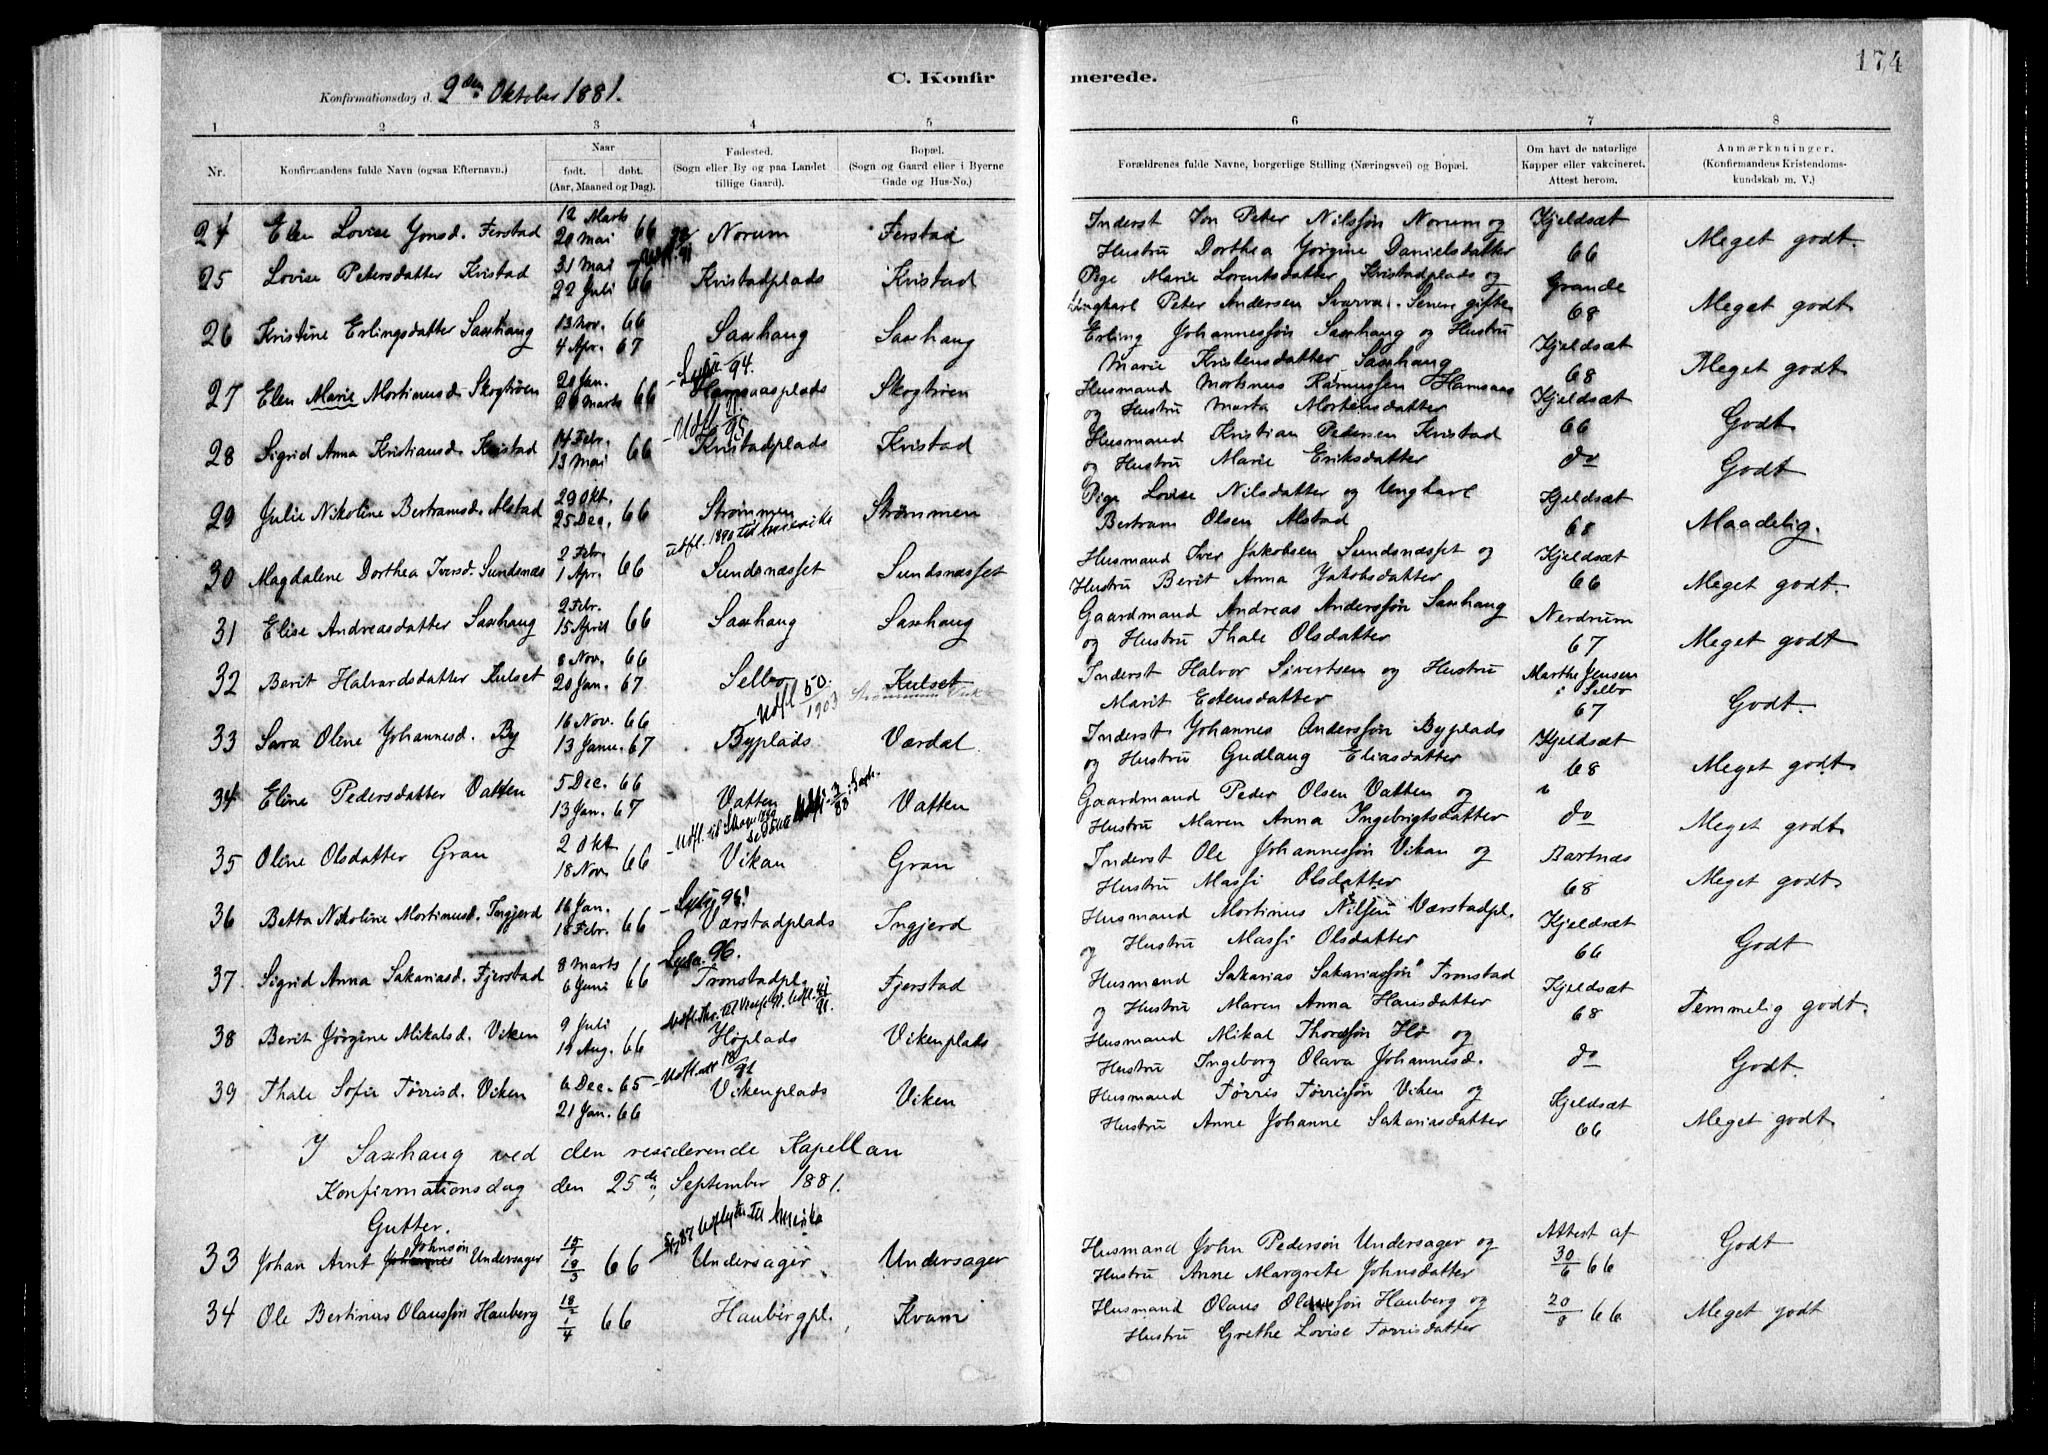 174
C. Konfirmerede.
Konfirmationsdag d. 9den Oktober 1881.
1 2 3 4 5 6 7 8
Nr.
Konfirmandens fulde Navn (ogsaa Efternavn.)
Naar
født. døbt.
(Aar, Maaned og Dag).
Fødested.
(Sogn eller By og paa Landet
tillige Gaard).
Bopæl.
(Sogn og Gaard eller i Byerne
Gade og Hus-No.)
Forældrenes fulde Navne, borgerlige Stilling (Næringsvei) og Bopæl.
Om havt de naturlige
Kapper eller vakcineret.
Attest herom.
Anmærkninger.
(Konfirmandens Kristendoms-
kundskab m. V.)
24 Elen Lovise Jonsd. Ferstad 12 Marts 20 Mai 66 Norum Ferstad
Inderst Jon Peter Nilssøn Norum og
Hustru Dorthea Jørgine Danielsdatter
Kjeldsæt 66 Meget godt.
25 Lovise Petersdatter Kristad 31 Mai 22 Juli 66 Kvistadplads Kvistad
Pige Marie Lorentsdatter Kvistadplads og
Ungkarl Peter Andersen Svarva. Senere gifte
Grande 68 Meget godt
26 Kristine Erlingsdatter Saxhaug 13 Nov. 66 4 Apr. 67 Saxhaug Saxhaug
Erling Johannessøn Saxhaug og Hustru
Marie Kristensdatter Saxhaug
Kjeldsæt 68 Meget godt
27 Elen Marie Mortinusd. Skogtrøen 20 Jan. 26 Marts 66 94. Hamsaasplads Skogtrøen
Husmand Mortinus Rasmussen Hamsaas
og Hustru Marta Mortensdatter
Kjeldsæt 66 Godt
28 Sigrid Anna Kristiansd. Kvistad 14 Febr. 13 Mai 66 Udfl. 95 Kvistadplads Kvistad
Husmand Kristian Pedersen Kvistad
og Hustru Marie Eriksdatter
do Godt
29 Julie Nikoline Bertramsd. Alstad 29 Okt. 25 Dec. 66 Strømmen Strømmen
Pige Lovise Nilsdatter og Ungkarl
Bertram Olsen Alstad
Kjeldsæt 68 Maadelig.
30 Magdalene Dorthea Iversd. Sundsnæs 2 Febr. 1 Apr. 66 Udfl. 1890 til Amerika Sundsnæsset Sundsnæsset
Husmand Iver Jakobsen Sundsnæsset og
Hustru Berit Anna Jakobsdatter
Kjeldsæt 66 Meget godt.
31 Elise Andreasdatter Saxhaug 2 Febr. 15 April 66 Saxhaug Saxhaug
Gaardmand Andreas Anderssøn Saxhaug
og Hustru Thale Olsdatter
Nerdrum 67 Meget godt
32 Berit Halvardsdatter Kulset 8 Nov. 66 20 Jan. 67 Selbo Kulset
Inderst Halvor Sivertsen og Hustru
Marit Estensdatter
Marthe Jensen i Selbo 67 Godt.
33 Sara Oline Johannesd. By 16 Nov. 66 13 Janu. 67 Udfl 50/1903 Byplads Værdal
Inderst Johannes Anderssøn Byplads
og Hustru Gudlaug Eliasdatter
Kjeldsæt 68 Meget godt
34 Eline Pedersdatter Vatten 5 Dec. 66 13 Jan. 67 Vatten Vatten
Gaardmand Peder Olsen Vatten og
Hustru Maren Anna Ingebrigtsdatter
do Meget godt
35 Oline Olsdatter Gran 2 Okt 18 Nov. 66 Vikan Gran
Inderst Ole Johannessøn Vikan og
Hustru Massi Olsdatter
Bartnæs 68 Meget godt
36 Betta Nikoline Mortinusd. Ingjerd 16 Jan. 18 Febr. 66 Værstadplads Ingjerd
Husmand Mortinus Nilsen Værstadpl.
og Hustru Massi Olsdatter
Kjeldsæt 66 Godt
37 Sigrid Anna Sakariasd. Fjerstad 8 Marts 6 Juni 66 96. Tronstadpl. Fjerstad
Husmand Sakarias Sakariassøn Tronstad
og Hustru Maren Anna Hansdatter
Kjeldsæt 68 Temmelig godt.
38 Berit Jørgine Mikalsd. Viken 9 Juli 19 Aug. 66 Høplads Vikenplads
Husmand Mikal Thoressøn Hø og
Hustru Ingeborg Olava Johannesd.
do Godt.
39 Thale Sofie Tørrisd. Viken 6 Dec. 65 21 Jan. 66 Vikenplads Viken
Husmand Tørris Tørrissøn Viken og
Hustru Anne Johanne Sakariasdatter
Kjeldsæt 66 Meget godt
I Saxhaug ved den residerende Kapellan
Konfirmationsdag den 25de September 1881.
Gutter.
33 Johan Arnt Johnsøn Undersager 15/1 19/3 66 Udflytter til Amerika Undersager Undersager
Husmand John Pedersøn Undersager og
Hustru Anne Margrete Johnsdatter
Attest af 30/6 66 Godt
34 Ole Bertinus Olaussøn Hauberg 18/2 1/4 66 Haubergpl. Kvam
Husmand Olaus Olaussøn Hauberg og
Hustru Grethe Lovise Tørrisdatter
20/8 66 Meget godt